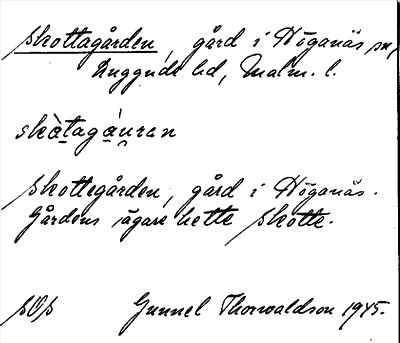 Skottagården, gård i Höganäs sn,
Luggude hd, Malm. l.
skàtagáuran
Skottegården, gård i Höganäs.
Gårdens ägare hette Skotte.
Gunnel Thorwaldson 1945.